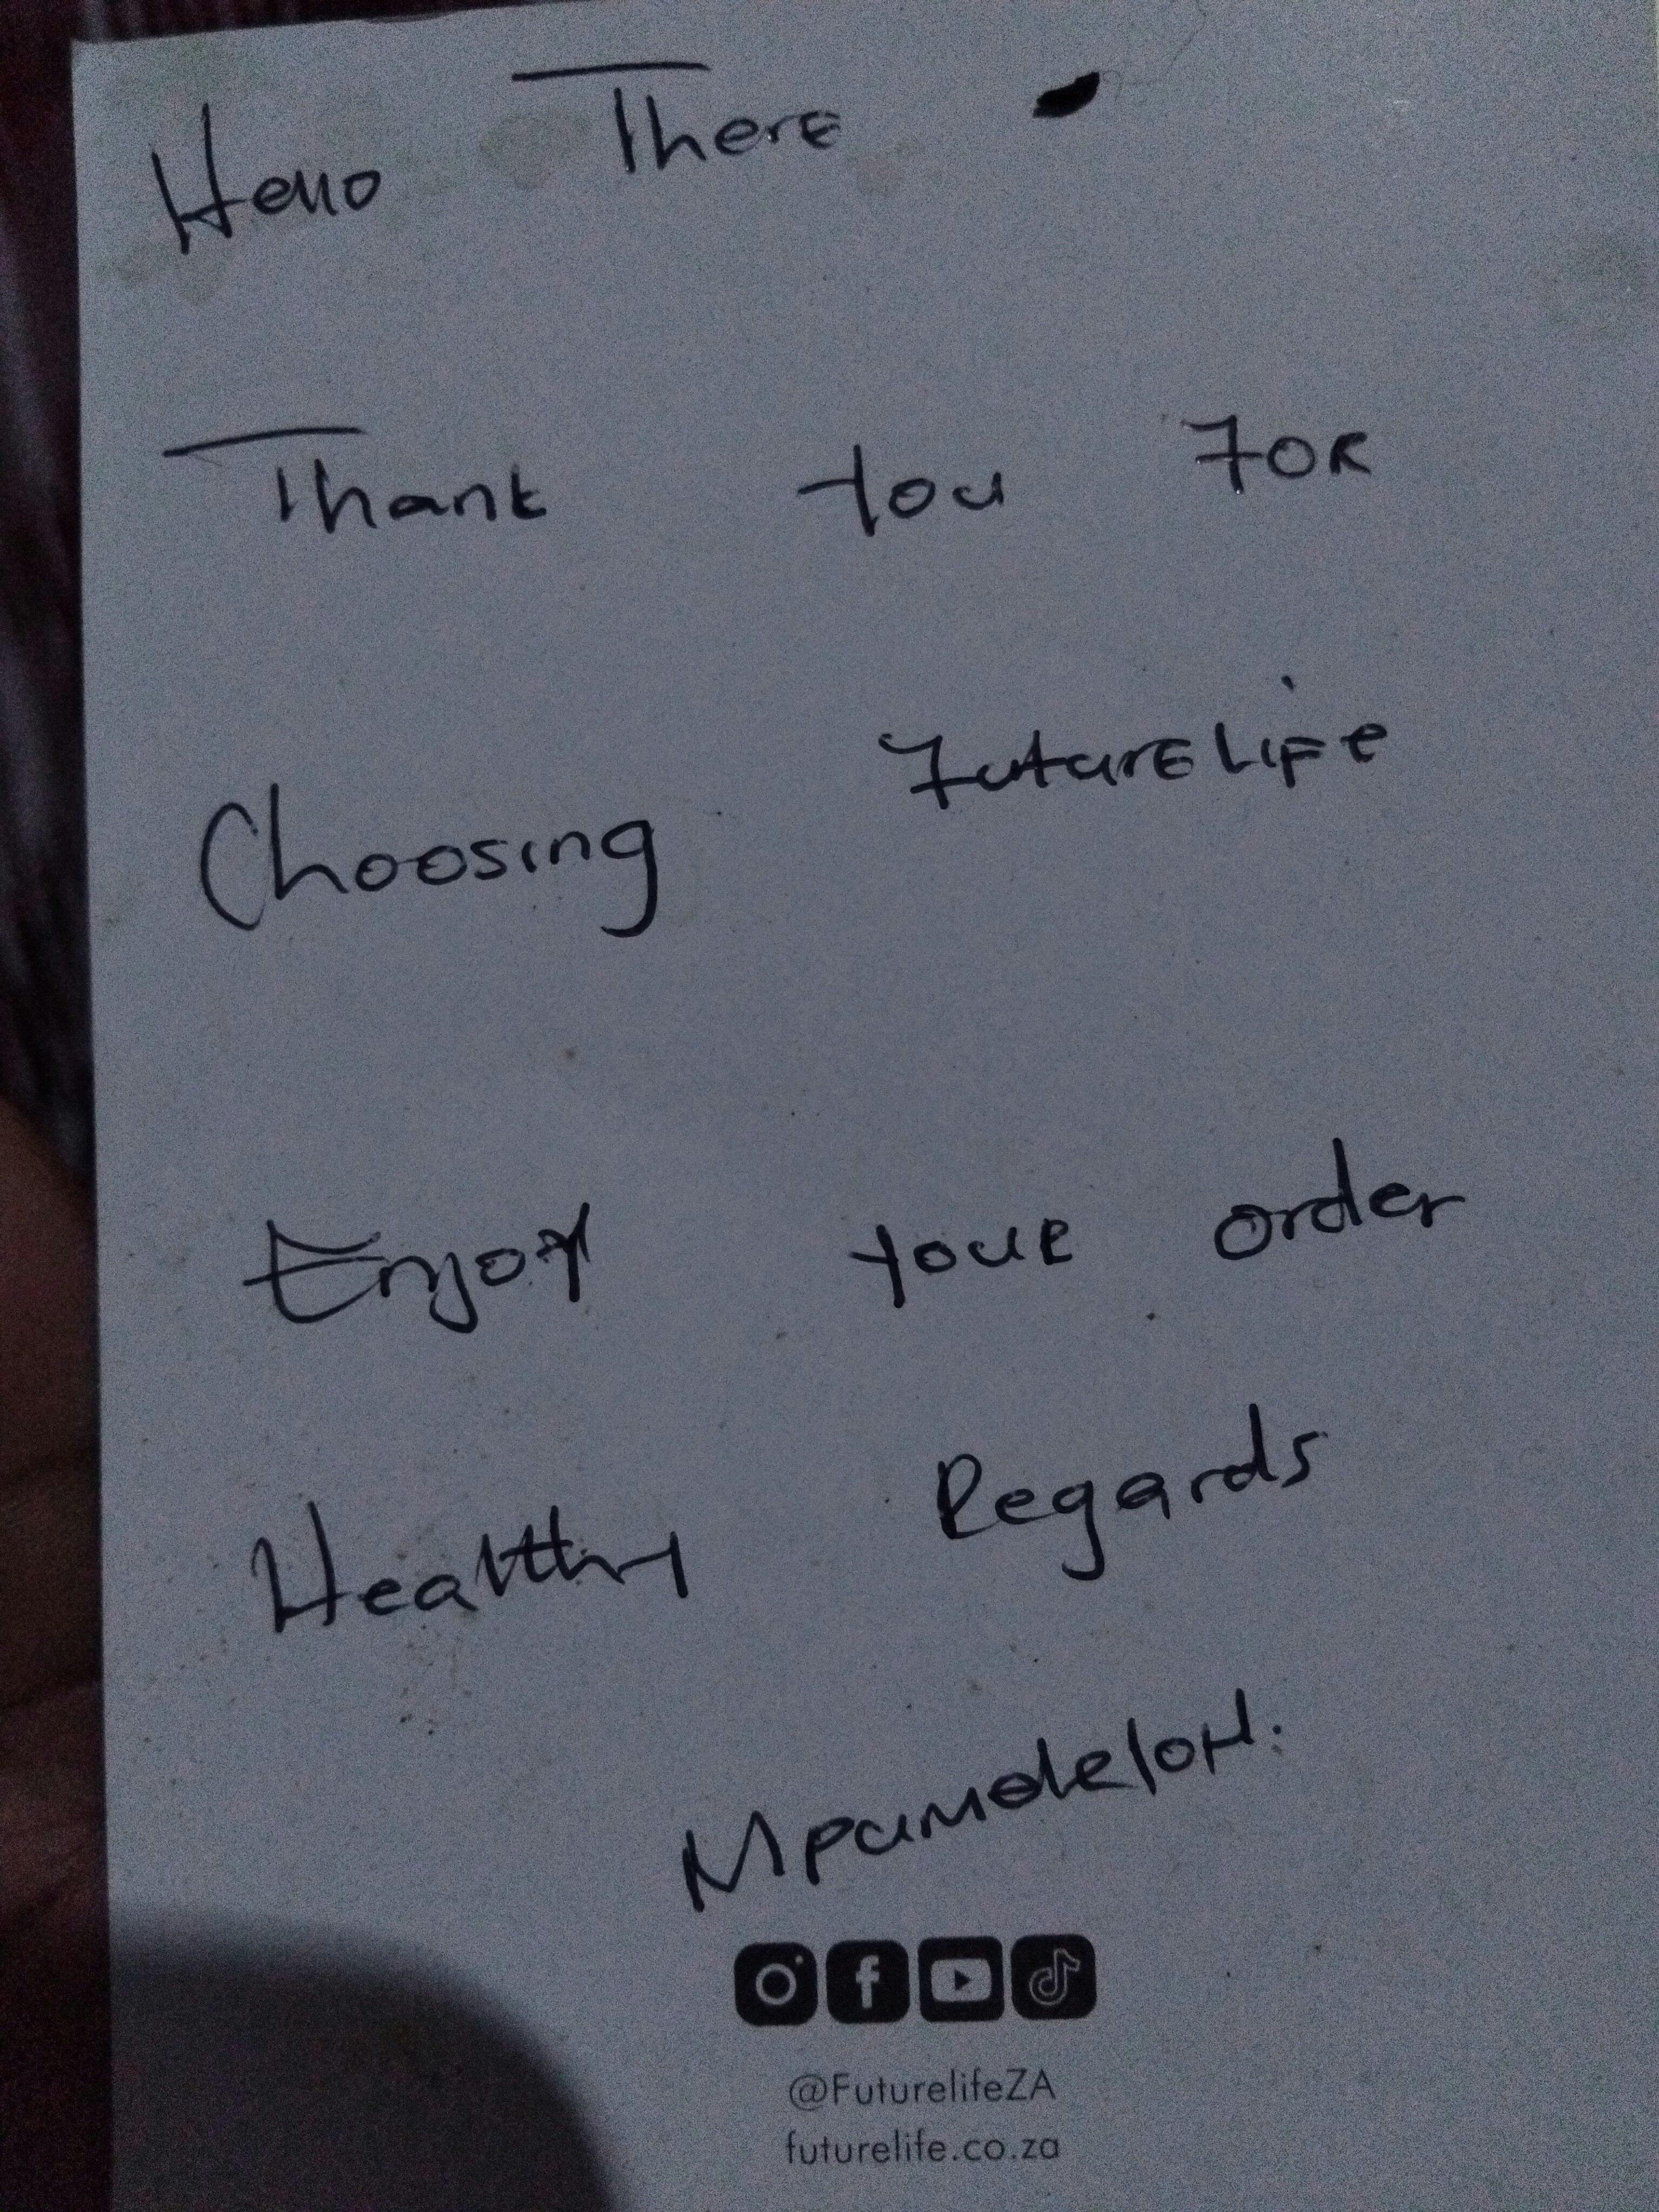 Hello There
Thank You FOR
Choosing FuturELiFe
Enjoy YouR order
Healthy Regards
@FuturelifeZA
futurelife.co.za